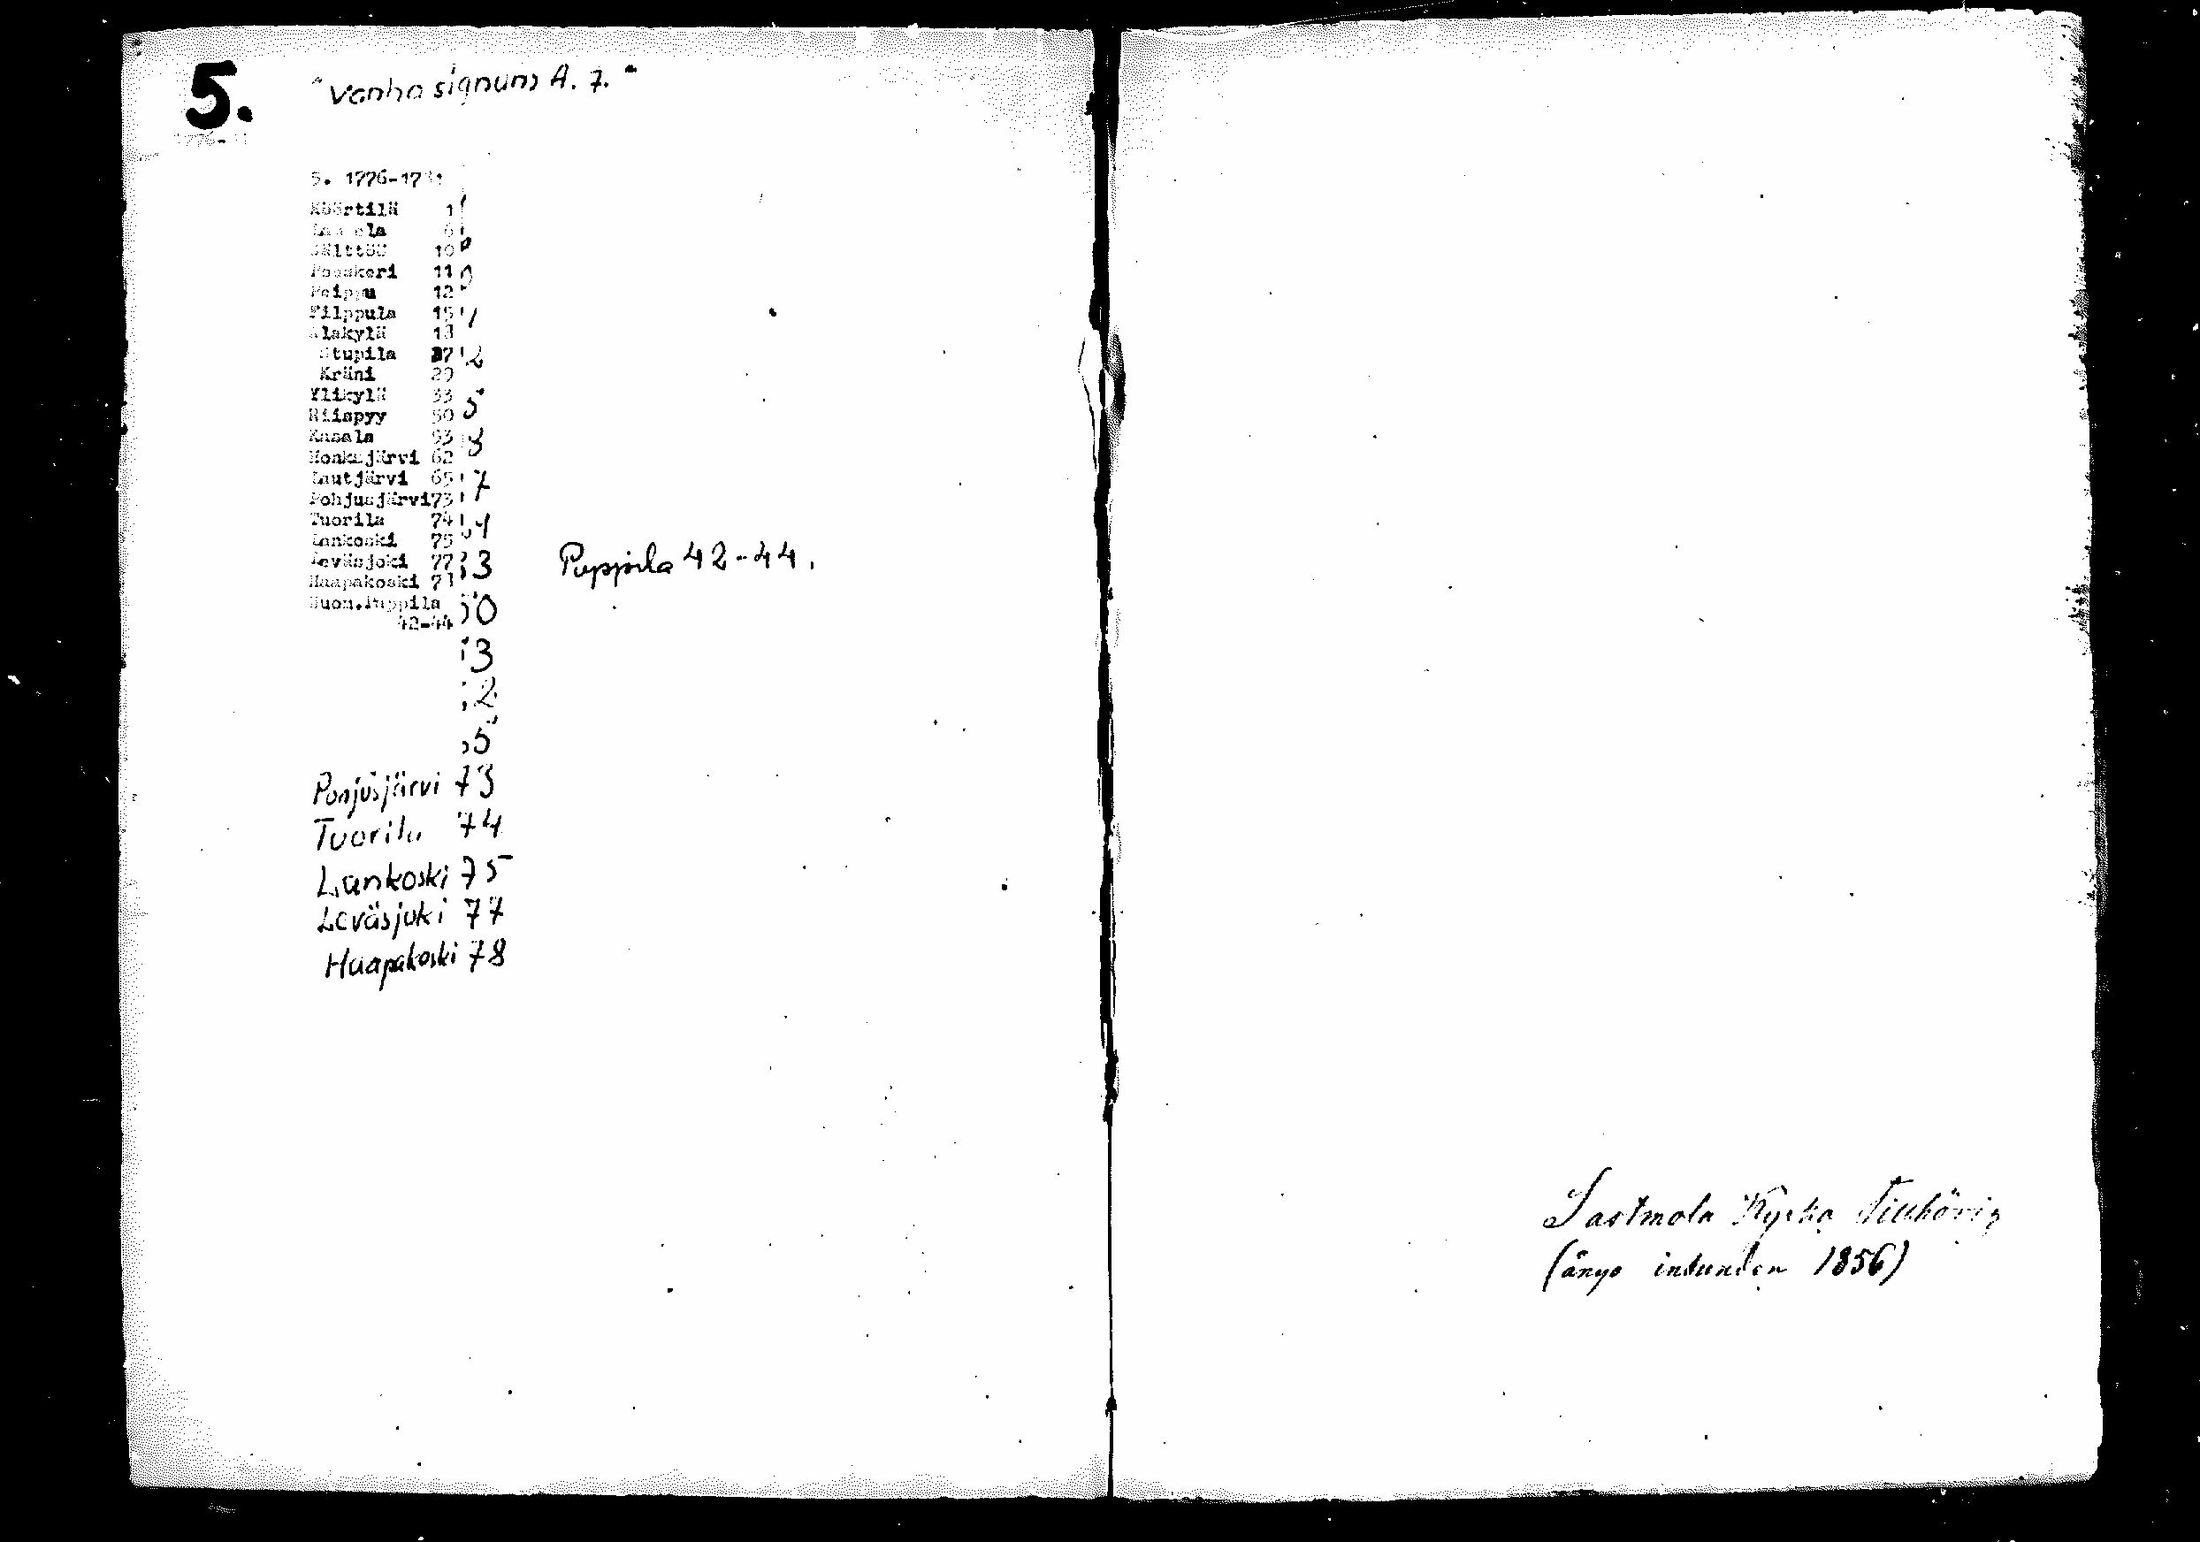 5.
"Vanha signum A. 7."
5. 1776-17
Köörtilä 1
ola 6
Sälttöö 10
Pooskeri 11
Peippu 12
Filppula 15
Alakylä 18
Stupila 27
Kräni 29
Ylikylä 33
Riispyy 50
Kasala 53
Honkajärvi 62
Lautjärvi 65
Pohjusjärvi 73
Tuorila 74
Lankoski 75
Leväsjoki 77
Haapakoski 7
Huom. Puppila
42-44
Puppila 42-44.
Pohjusjärvi 73
Tuorila 74
Lankoski 75
Leväsjoki 77
Haapakoski 78
Sastmola Kyrka Tillhörig
(ånyo inbunden 1856)